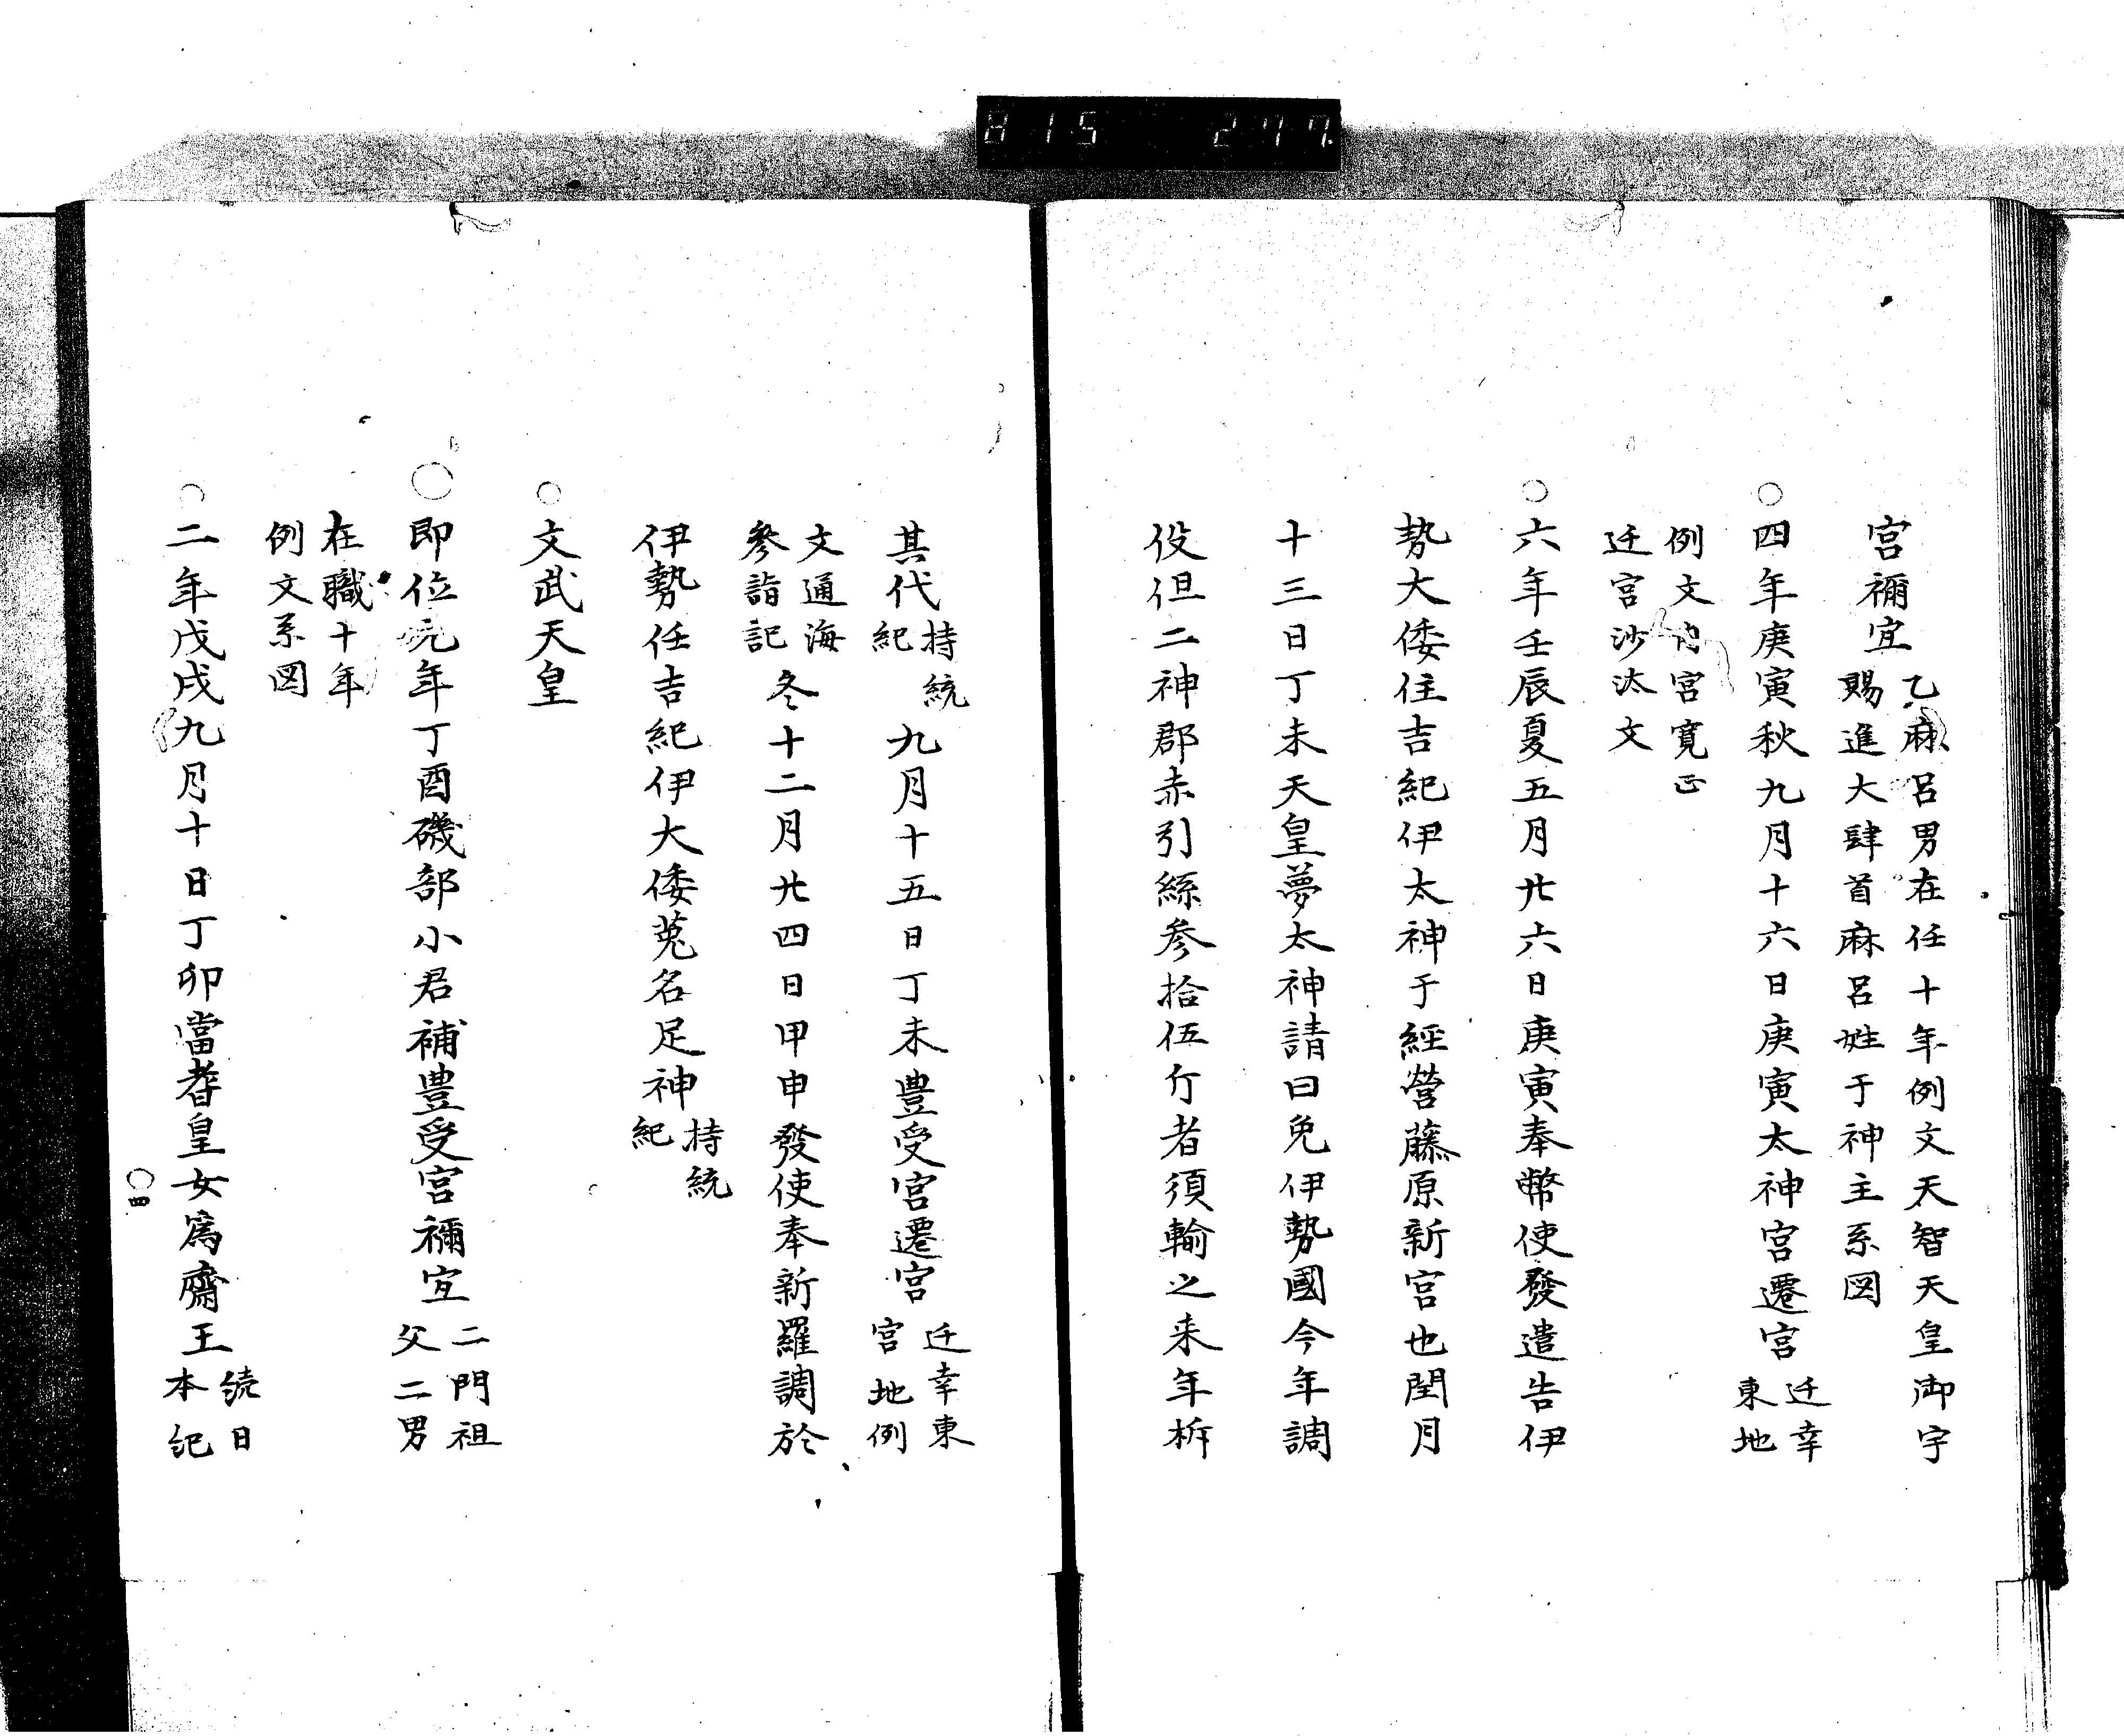 815 277
宮禰宜
乙麻呂男在任十年例文天智天皇御宇
賜進大肆首麻呂姓于神主系図
○四年庚寅秋九月十六日庚寅太神宮遷宮
迁幸
東地
例文内宮寛正
迁宮沙汰文
○六年壬辰夏五月廿六日庚寅奉幣使發遣告伊
勢大倭住吉紀伊太神于經營藤原新宮也閏月
十三日丁未天皇夢太神請曰免伊勢國今年調
役但二神郡赤引絲参拾伍斤者須輸之来年折
其代
持統
紀
九月十五日丁未豊受宮遷宮
迁幸東
宮地例
文通海
參詣記
冬十二月廿四日甲申發使奉新羅調於
伊勢住吉紀伊大倭菟名足神
持統
紀
○文武天皇
○即位元年丁酉磯部小君補豊受宮禰宜
二門祖
父二男
在職十年
例文系図
○二年戊戌九月十日丁卯當耆皇女為齋王
続日
本紀
○四